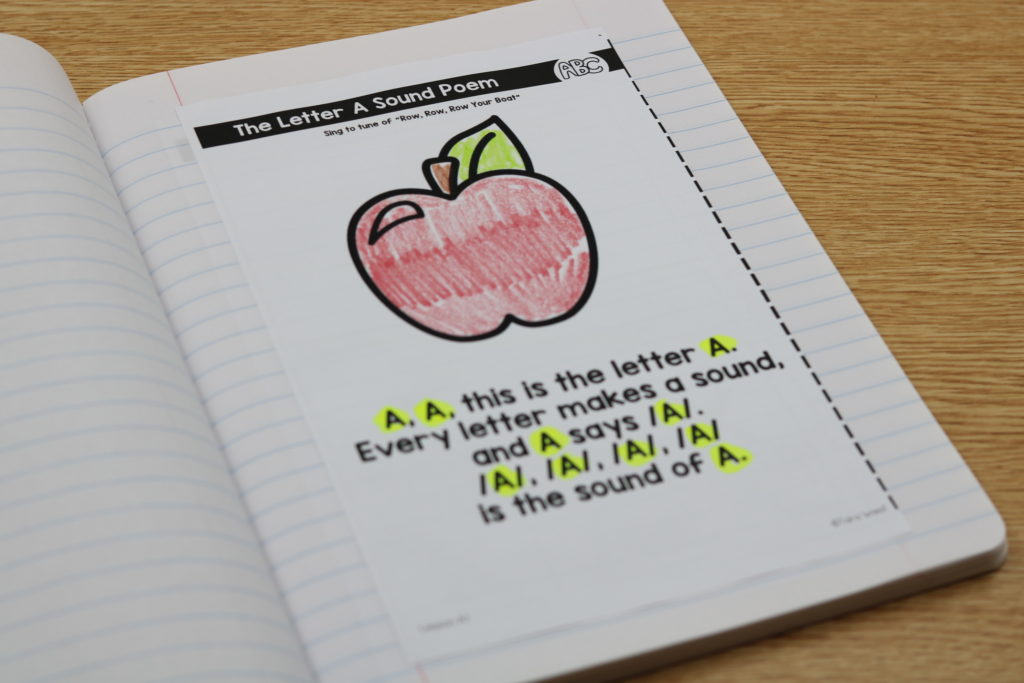 The Letter A Sound Poem
ABC
Sing to tune of "Row, Row, Row Your Boat"
A, A, this is the letter A.
Every letter makes a sound,
and A says /A/.
/A/, /A/, /A/, /A/
is the sound of A.